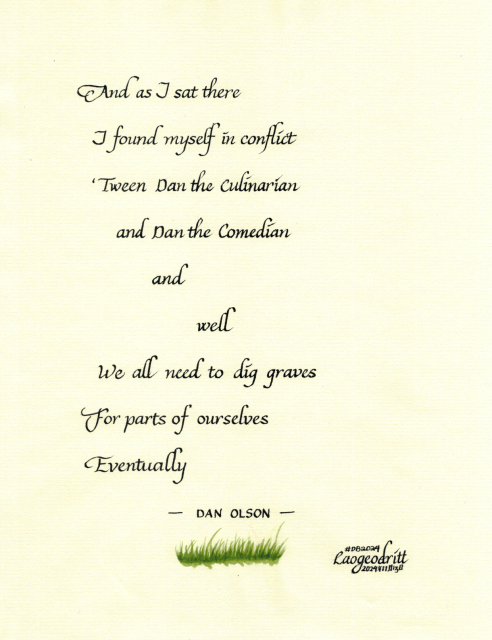 And as I sat there
I found myself in conflict
'Tween Dan the Culinarian
and Dan the Comedian
and
well
We all need to dig graves
For parts of ourselves
Eventually
— DAN OLSON —
#DB2024
Laogeodritt